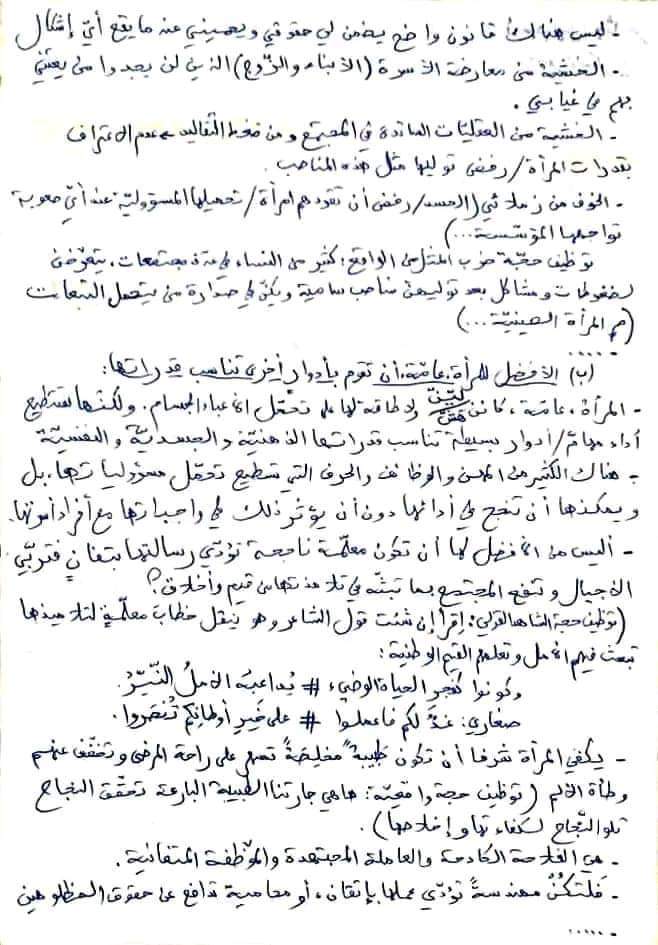 - ليس هناك قانون واضح يضمن لي حقوقي ويحميني عند ما يقع أيّ إشكال
- الخشية من معارضة الأسرة (الأبناء والزّوج) الذين لن يجدوا من يعتني
بهم في غيابي.
- الخشية من العقليّات السائدة في المجتمع و من ضغط التّقاليد ← عدم الاعتراف
بقدرات المرأة / رفض توليها مثل هذه المناصب.
- الخوف من زملائي (الحسد / رفض أن تقودهم امرأة / تحميلها المسؤوليّة عند أيّ صعوبة
تواجهها المؤسّسة...)
توظيف حجّة ضرب المثل من الواقع: كثير من النساء في عدة مجتمعات، يتعرّضن
لضغوطات ومشاكل بعد توليهنّ مناصب سامية ويكنّ في صدارة من يتحمل التبعات
(م المرأة الصينيّة...)
.....
(ب) الأفضل للمرأة، عامّة، أن تقوم بأدوار أخرى تناسب قدراتها:
- المرأة، عامّة، كائن ليّن هشّ ولا طاقة لها على تحمّل الأعباء الجسام. ولكنّها تستطيع
أداء مهامّ / أدوار بسيطة تناسب قدراتها الذهنيّة والجسديّة والنفسيّة
- هناك الكثير من المهن والوظائف والحرف التي تستطيع تحمّل مسؤولياتها، بل
ويمكنها أن تنجح في أدائها دون أن يؤثر ذلك في واجباتها مع أفراد أسرتها.
- أليس من الأفضل لها أن تكون معلّمة ناجحة تؤدّي رسالتها بتفانٍ فتربّي
الأجيال وتنفع المجتمع بما تبثّه في تلامذتها من قيم وأخلاق؟
(توظيف حجة الشاهد القولي: اِقرأ إن شئت قول الشاعر وهو ينقل خطاب معلّمةٍ لتلاميذها
تبعث فيهم الأمل وتعلمهم القيم الوطنيّة:
وكونوا كفجرِ الحياة الوضيء # يُداعبهُ الأملُ النَّيّرُ.
صغاري: غدٌ لكم فاعملوا # على خيرِ أوطانِكم تُنصَروا.
- يكفي المرأة شرفا أن تكون طبيبةً مخلِصةً تسهر على راحة المرضى وتخفّف عنهم
وطأة الألم (توظيف حجة واقعيّة: ها هي جارتنا الطبيبة البارعة تحقّق النجاح
تلو النّجاح لكفاءتها وإخلاصها).
- هي الفلاحة الكادحة والعاملة المجتهدة والموّظفة المتفانية.
- فَلتكُنْ مهندسةً تؤدّي عملها بإتقان، أو محامية تدافع عن حقوق المظلومين
- .....